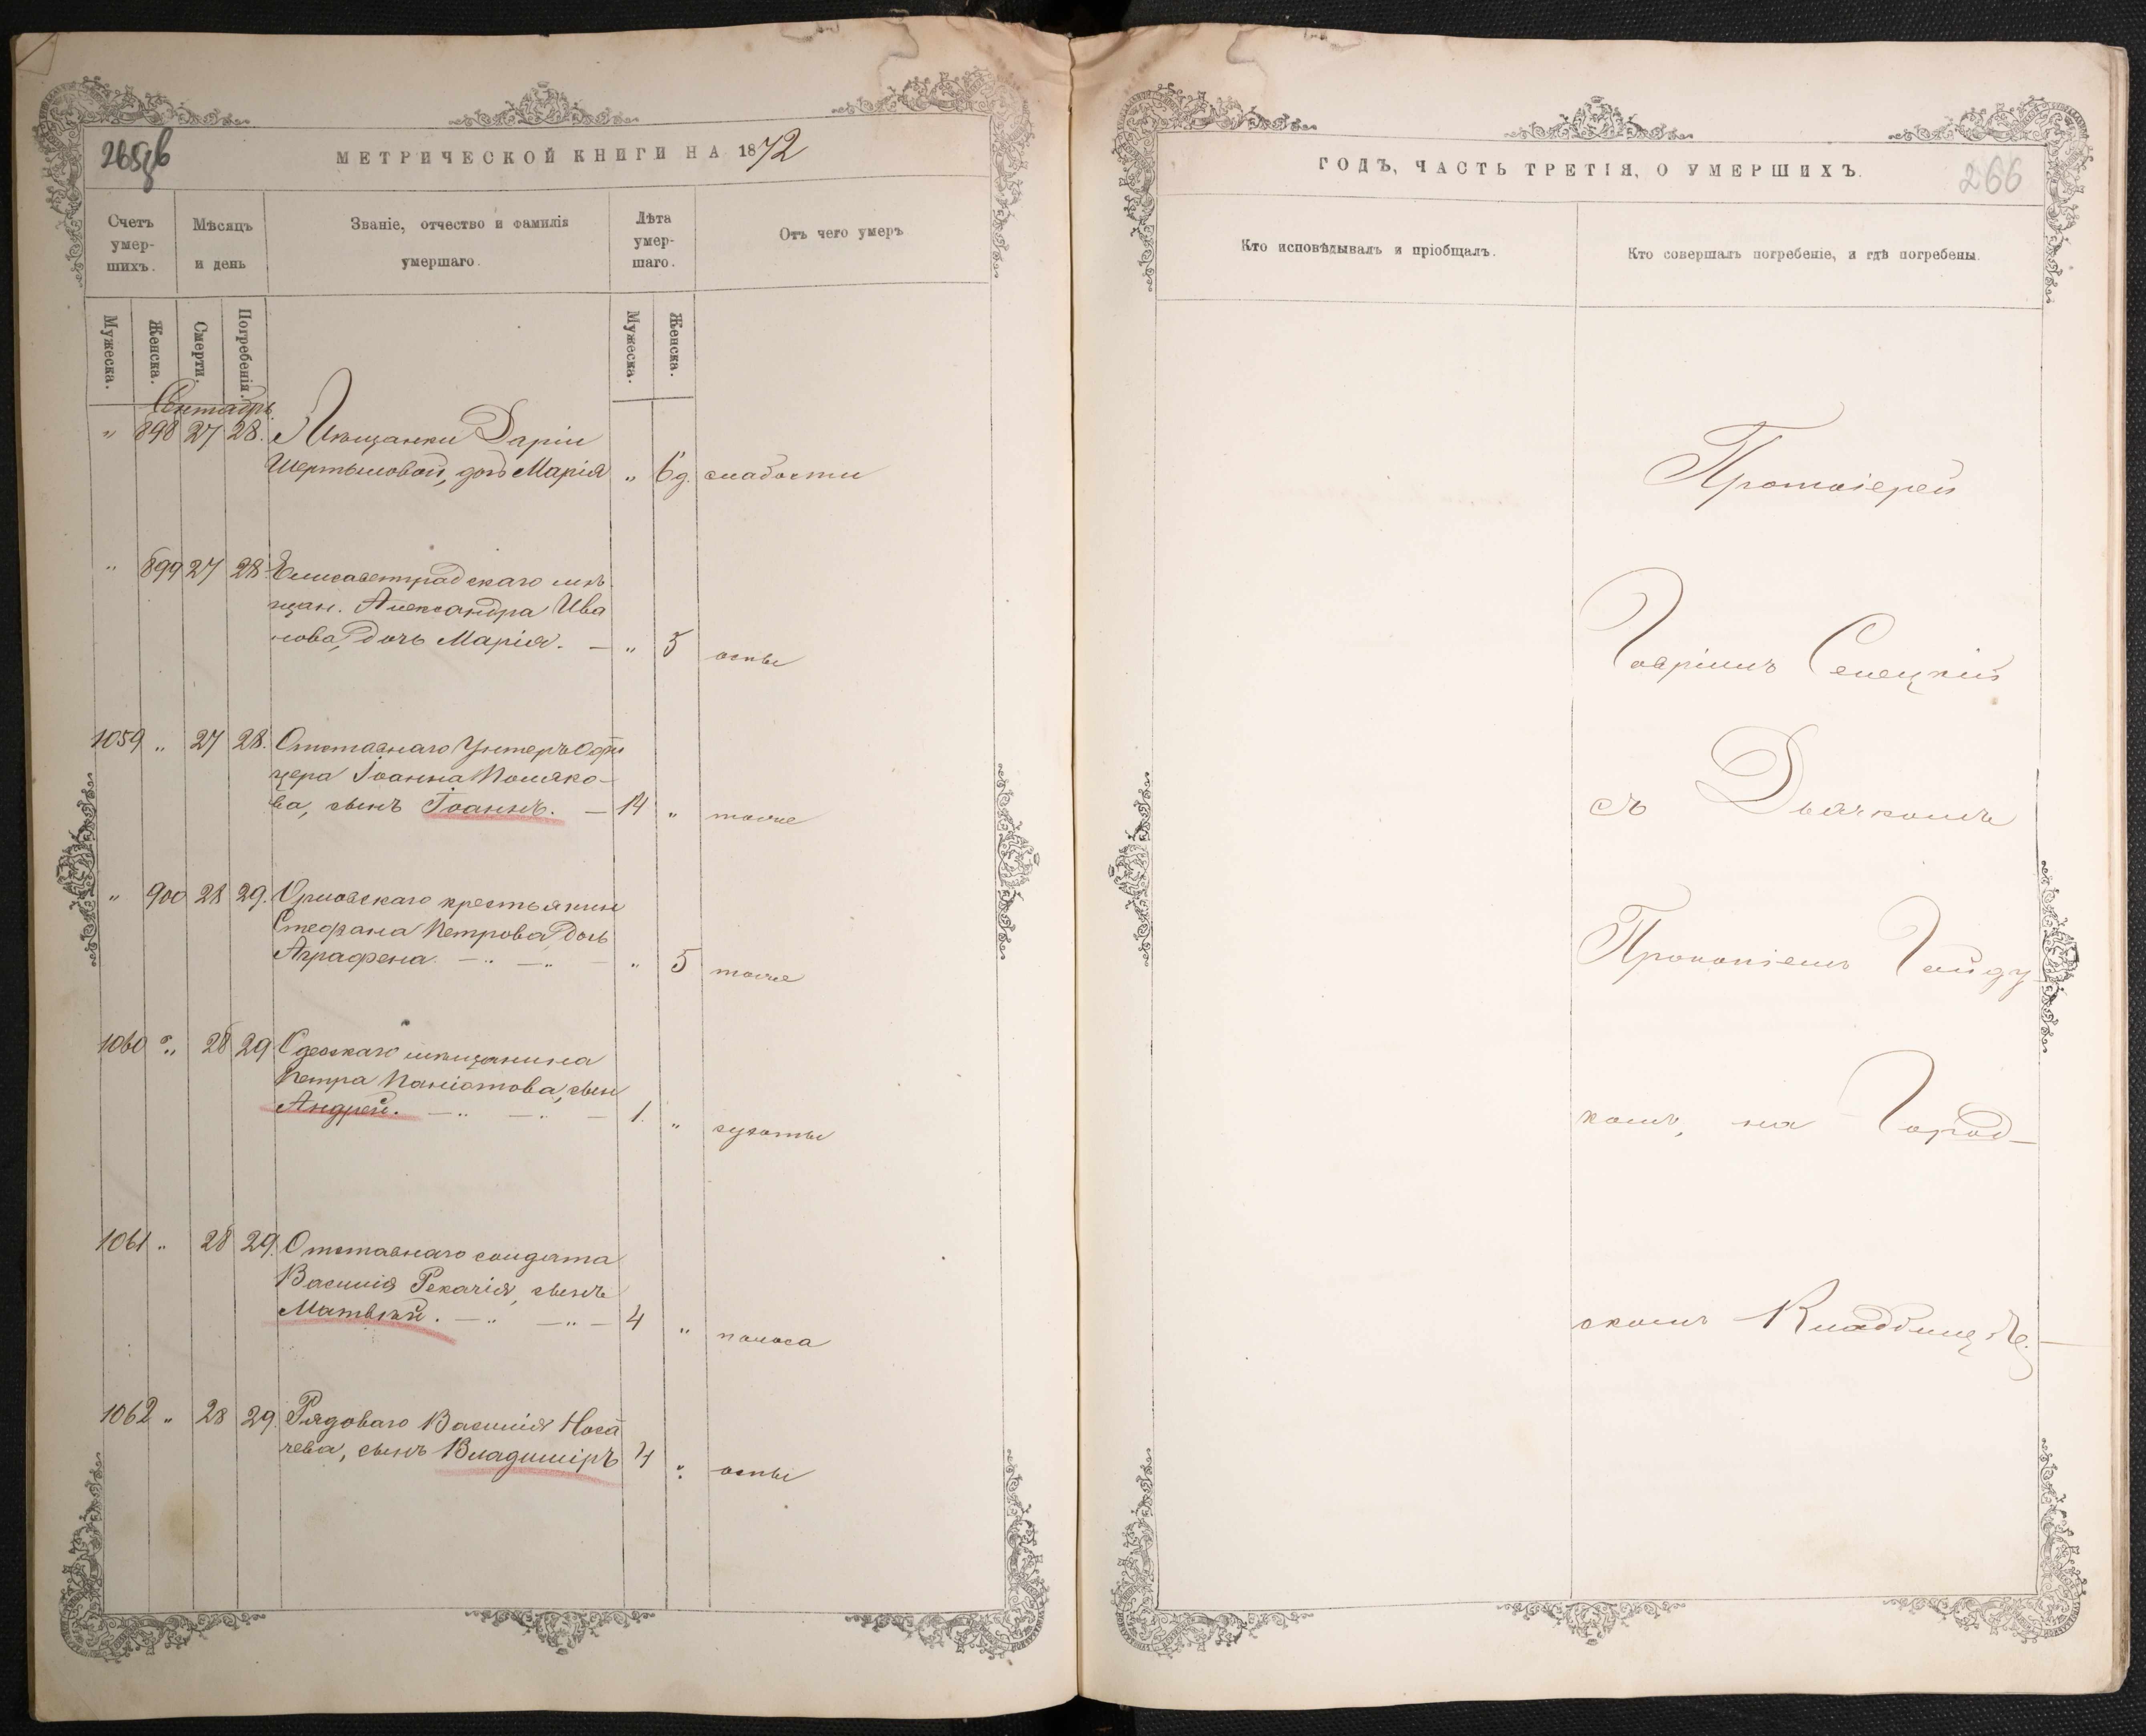 265зв
МЕТРИЧЕСКОЙ КНИГИ НА 1872
Счетъ умер- шихъ.
Мѣсяцъ и день
Званіе, отчество и фамилія умершаго.
Лѣта умер- шаго.
Отъ чего умеръ
Мужеска.
Женска.
Смерти.
Погребенія.
Мужеска.
Женска.
Сентябрь
„ 898 27 28. Мѣщанки Даріи
дочь Марія „ 6 д. слабости
„ 899 27 28 Елисаветградскаго мѣ
щан. Александра Ива
нова, дочь Марія. — „ 5 оспы
1059 „ 27 28. Отставнаго Унтеръ Офи
цера Іоанна Поляко-
ва, сынъ Іоаннъ. — 14 „ тоже
„ 900 28 29. Орловскаго крестьянин
Стефана Петрова, дочь
Аграфена. — „ — „ — „ 5 тоже
1060 „ 28 29 Одесскаго мѣщанина
Петра Паніотова, сын
Андрей. — „ — „ — 1. „ сухоты
1061 „ 28 29. Отставнаго солдата
Василія Рекачія, сынъ
Матвѣй. — „ — „ — 4 „ поноса
1062 „ 28 29. Рядоваго Василія Носа
чева, сынъ Владиміръ 4 „ оспы
ГОДЪ, ЧАСТЬ ТРЕТІЯ, О УМЕРШИХЪ.
266
Кто исповѣдывалъ и пріобщалъ.
Кто совершалъ погребеніе, и гдѣ погребены.
Протоіерей
Гавріилъ Селецкій
съ Дьячкомъ
Прокопіемъ Гайду
комъ, на Город—
скомъ Кладбищѣ.